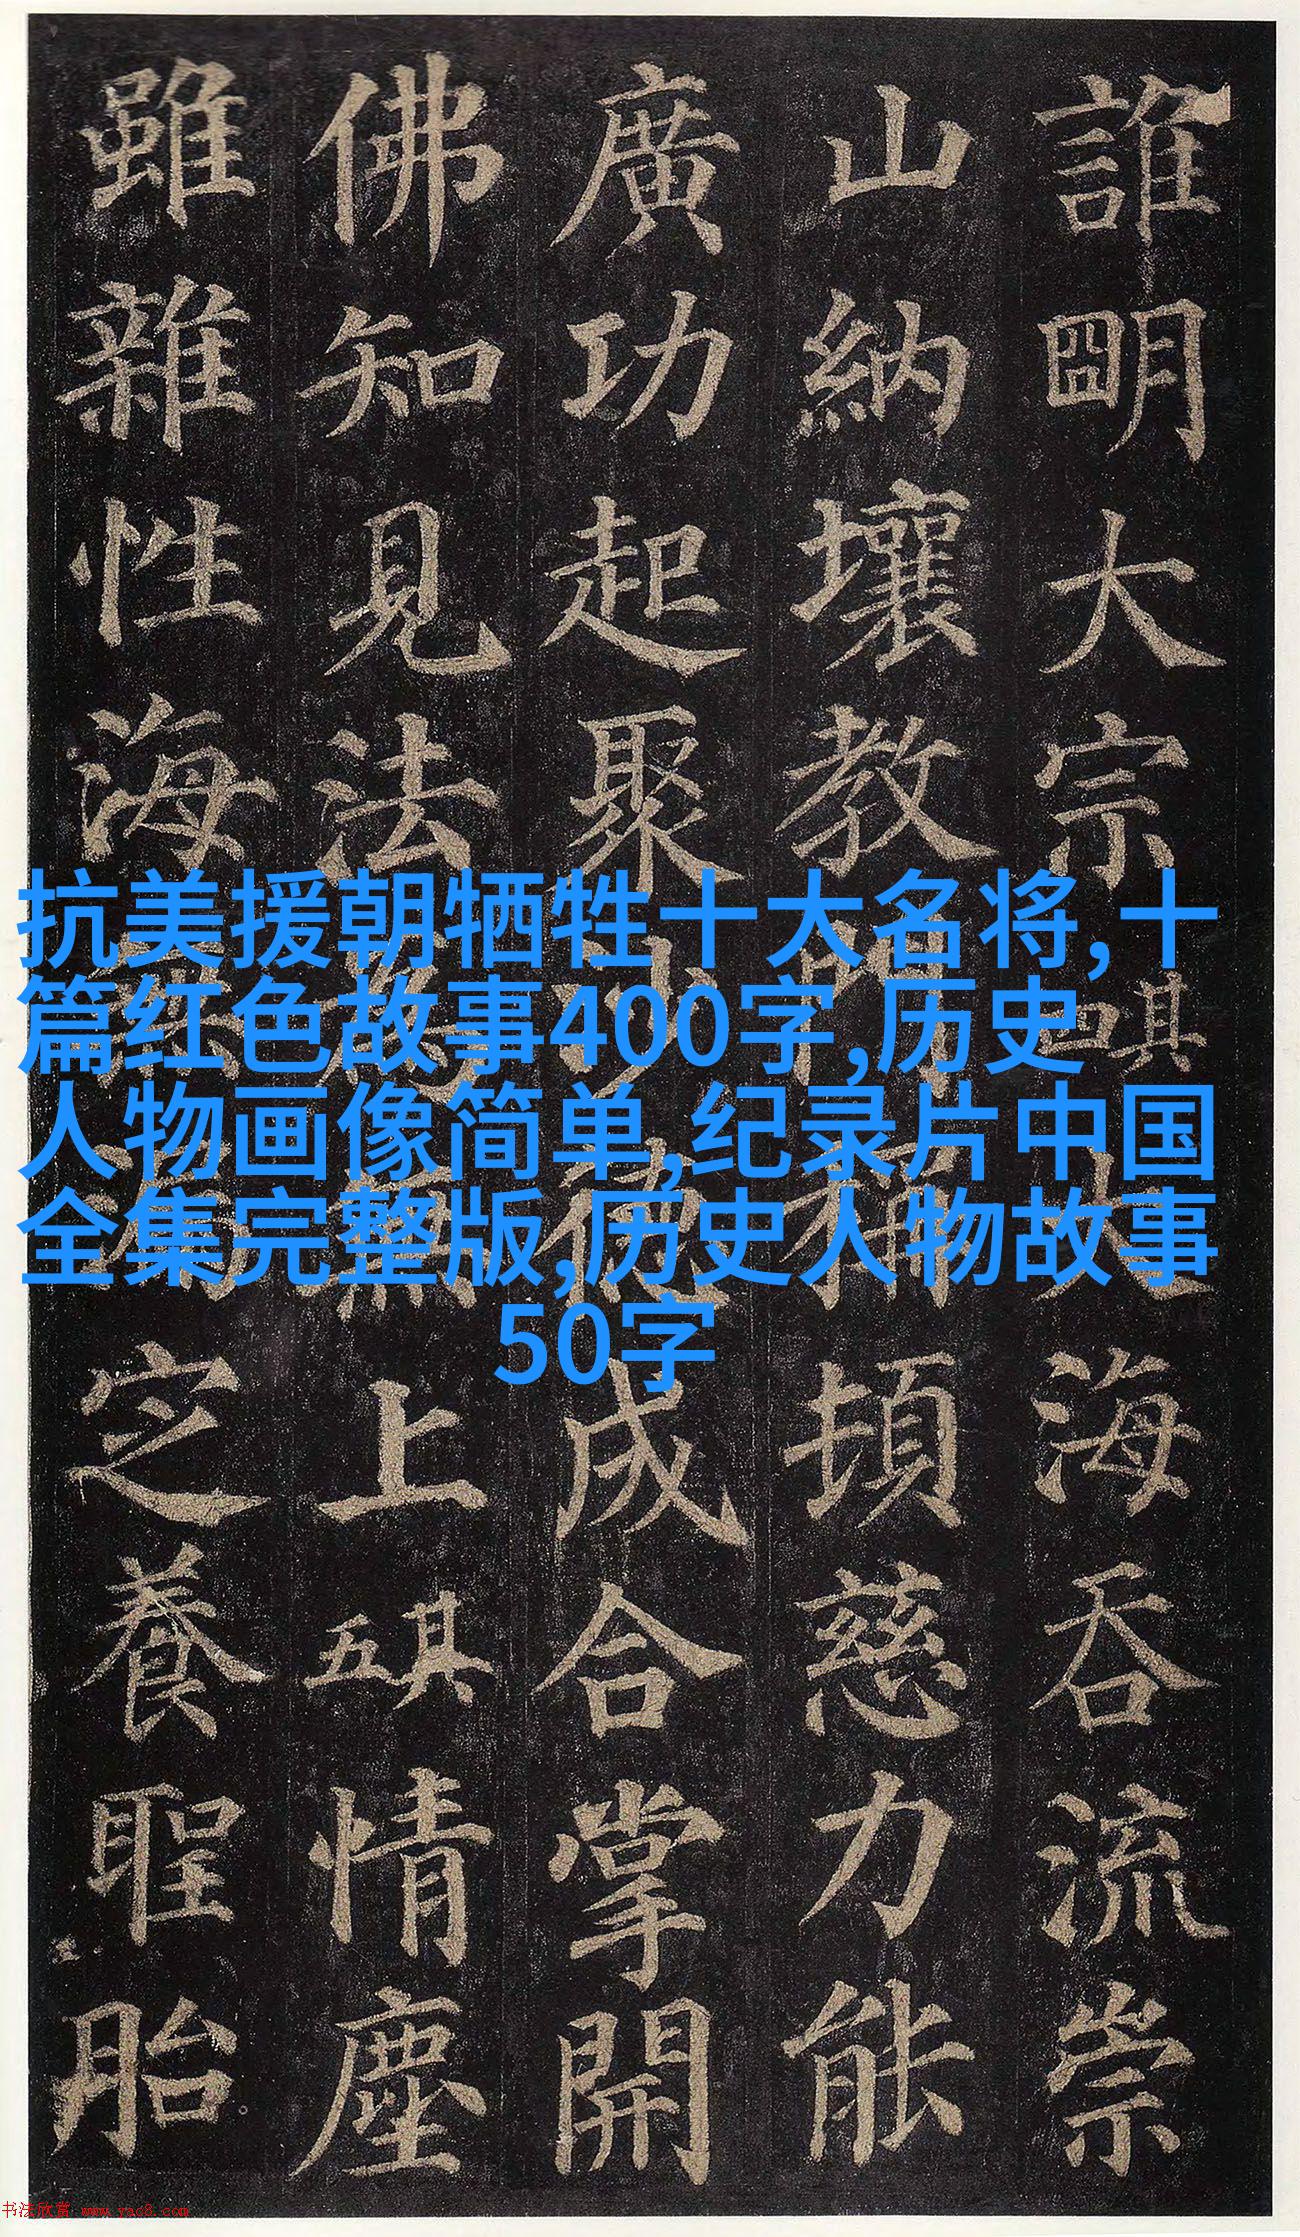 誰明大宗其四大海吞流崇
山納壤教門稱頓慈力能
廣功起聚沙德成合掌開
佛知見法為無上其五情塵
雖雜性海無漏定養聖胎
抗美援朝牺牲十大名将,十
篇红色故事400字,历史
人物画像简单,纪录片中国
全集完整版,历史人物故事
50字
书法欣赏 www.yac8.com